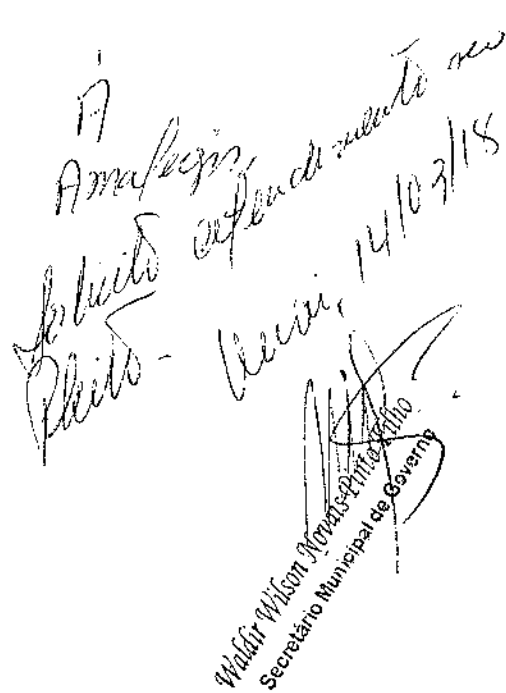 À
Amalegis,
Solicito atendimento ao
Pleito -
14/03/18
Waldir Wilson Novais Pinto Filho
Secretário Municipal de Governo